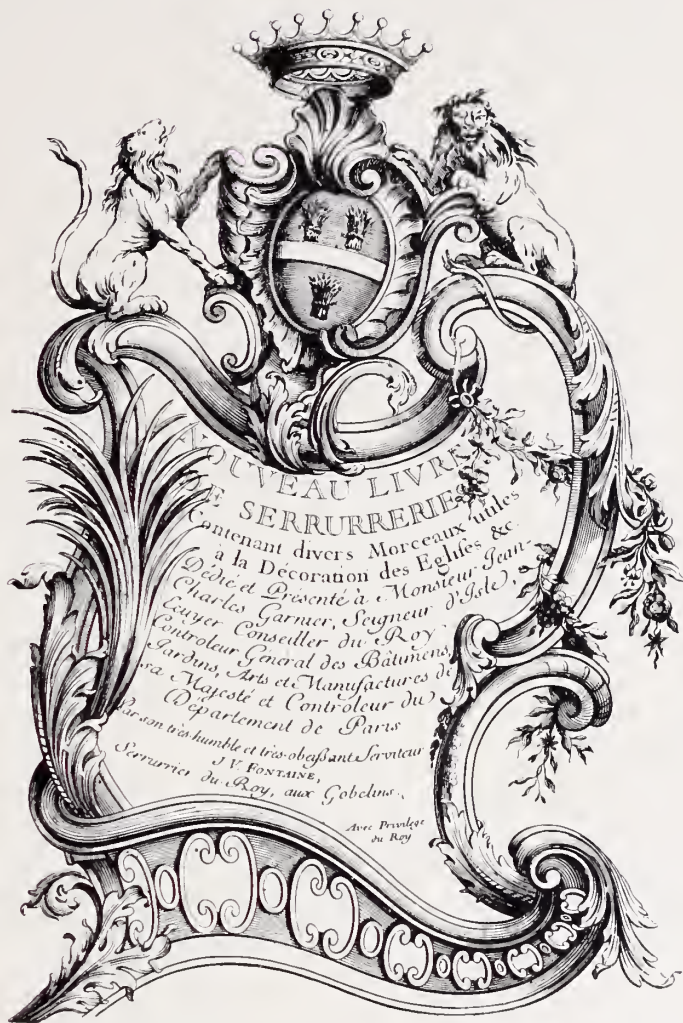 NOUVEAU LIVRE
DE SERRURRERIE
Contenant divers Morceaux utiles
à la Décoration des Eglises &c.
Dédié et Présenté à Monsieur Jean-
Charles Garnier, Seigneur d'Isle,
Ecuyer Conseiller du Roy
Controleur Général des Bâtimens,
Jardins, Arts et Manufactures de
sa Majesté et Controleur du
Département de Paris
Par son très humble et tres-obeissant Serviteur
J V. FONTAINE,
Serrurier du Roy, aux Gobelins.
Avec Privilege
du Roy